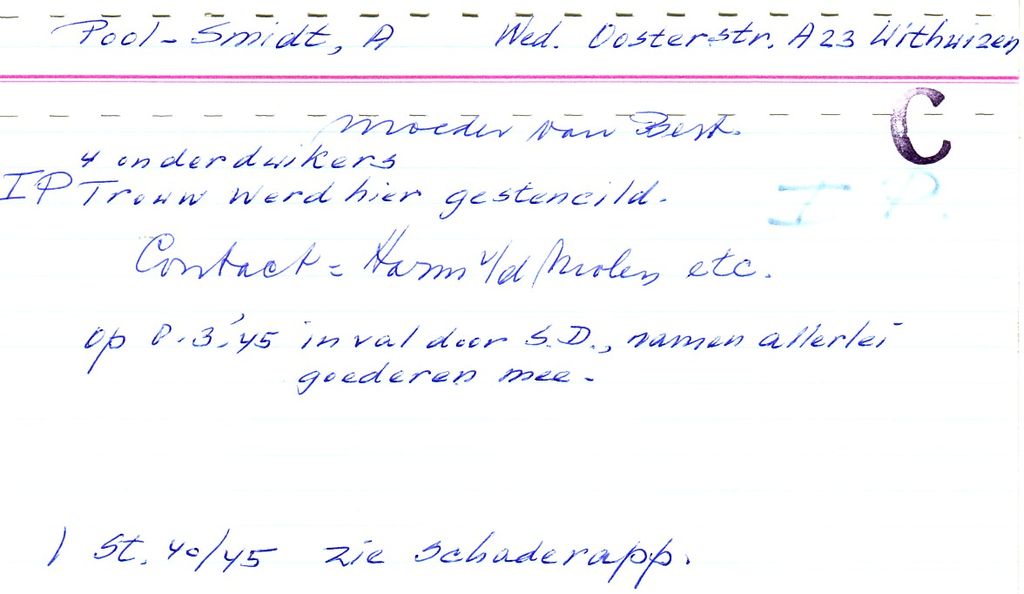 Pool-Smidt, A Wed. Oosterstr. A23 Uithuizen
C
Moeder van Bert.
4 onderduikers
IP Trouw werd hier gestencild. I P.
Contact = Harm v/d Molen etc.
Op 8.3.'45 inval door S.D., namen allerlei
goederen mee.
) St. 40/45 zie schaderapp.